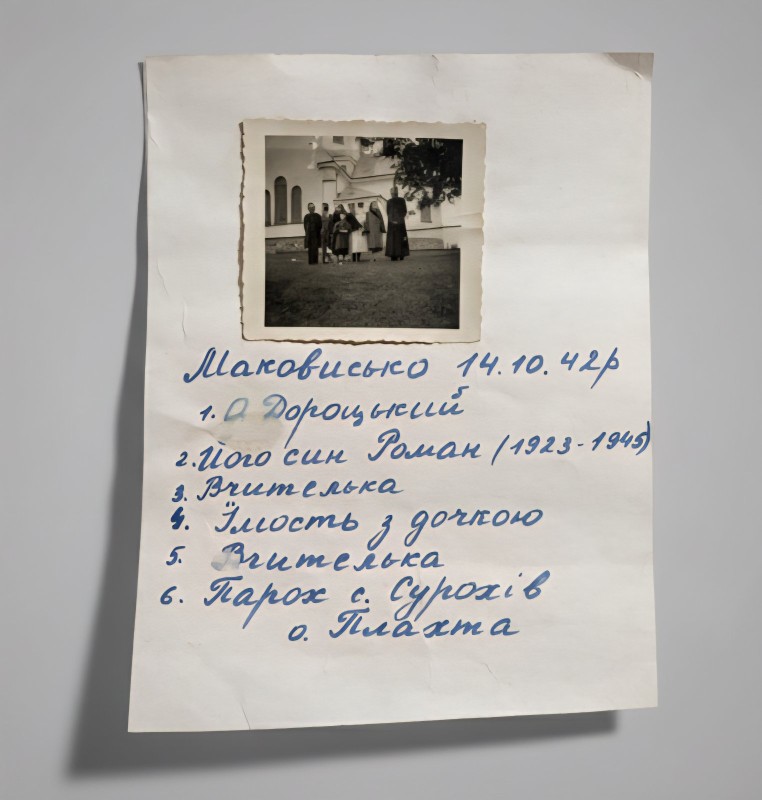 Маковисько 14.10.42р
1. О Дороцький
2. Його син Роман (1923-1945)
3. Вчителька
4. Їмость з дочкою
5. Вчителька
6. Парох с. Сурохів
о. Плахта